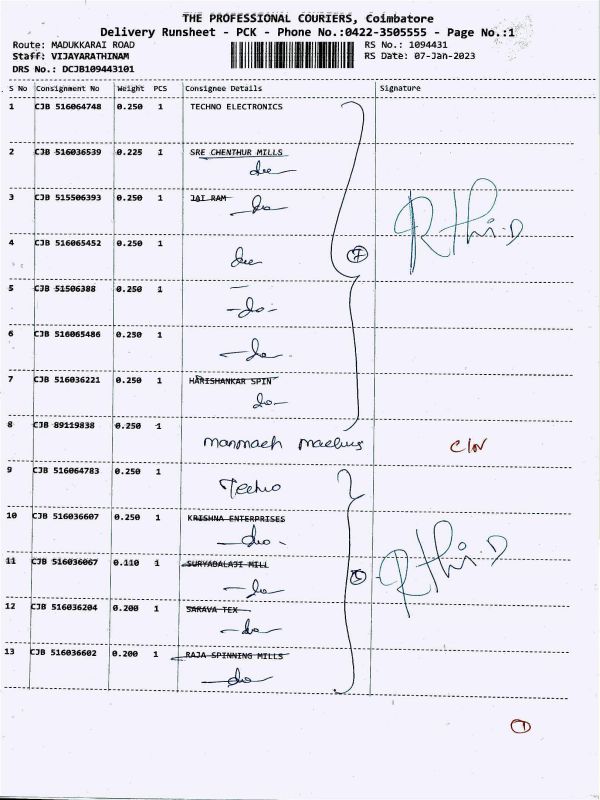 THE PROFESSIONAL COURIERS, Coimbatore
Delivery Runsheet - PCK - Phone No.:0422-3505555 - Page No.:1
Route: MADUKKARAI ROAD RS No.: 1094431
Staff: VIJAYARATHINAM RS Date: 07-Jan-2023
DRS No.: DCJB109443101
S No Consignment No Weight PCS Consignee Details Signature
1 CJB 516064748 0.250 1 TECHNO ELECTRONICS
2 CJB 516036539 0.225 1 SRE CHENTHUR MILLS
3 CJB 515506393 0.250 1 JAI RAM
-do-
R Thi.D
4 CJB 516065452 0.250 1
7
5 CJB 51506388 0.250 1
-do-
6 CJB 516065486 0.250 1
-do-
7 CJB 516036221 0.250 1 HARISHANKAR SPIN
do-
8 CJB 89119838 0.250 1
9 CJB 516064783 0.250 1
Techno
10 CJB 516036607 0.250 1 KRISHNA ENTERPRISES
-do-
R Thi.D
11 CJB 516036067 0.110 1 SURYABALAJI MILL
-do
12 CJB 516036204 0.200 1 SARAVA TEX
-do-
13 CJB 516036602 0.200 1 RAJA SPINNING MILLS
-do
1